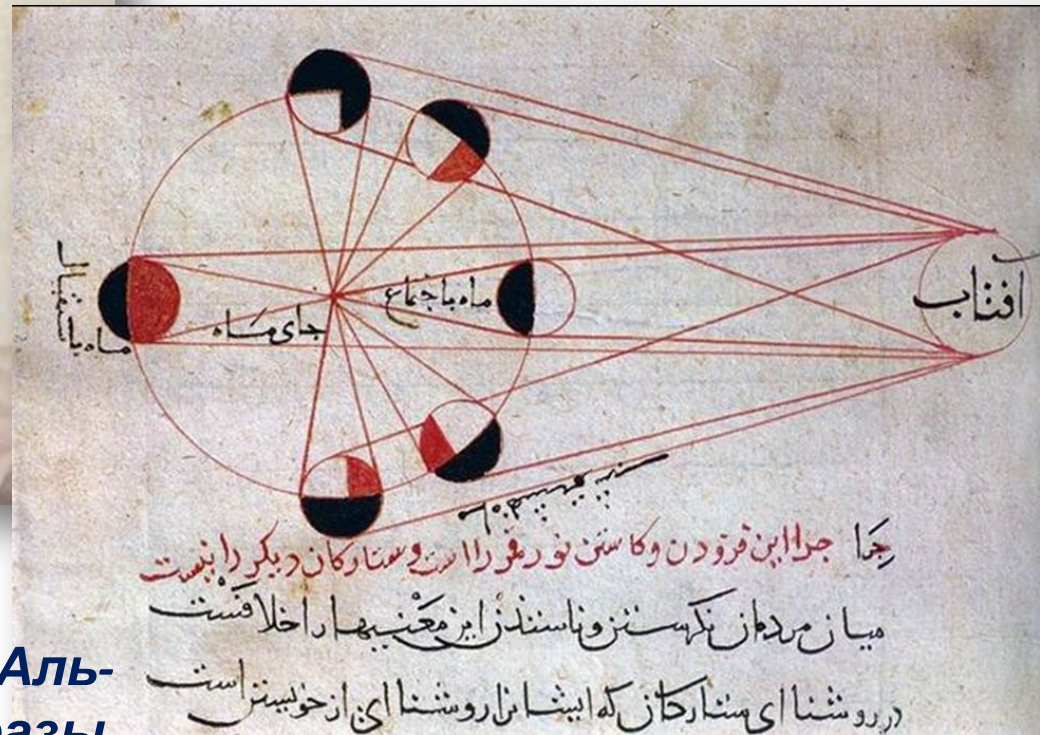 افتاب
ماه باجتماع
جای ماه
ماه باستقبال
چرا این فزودن و کاستن نور قمر را است و ستارکان دیکر را نیست
میان مردمان نکرستن و ناسنندن این معنیها را اخلافست
در روشنا ای ستارکان که ایشانرا روشنا ای از خویشتن است
Аль-
разы